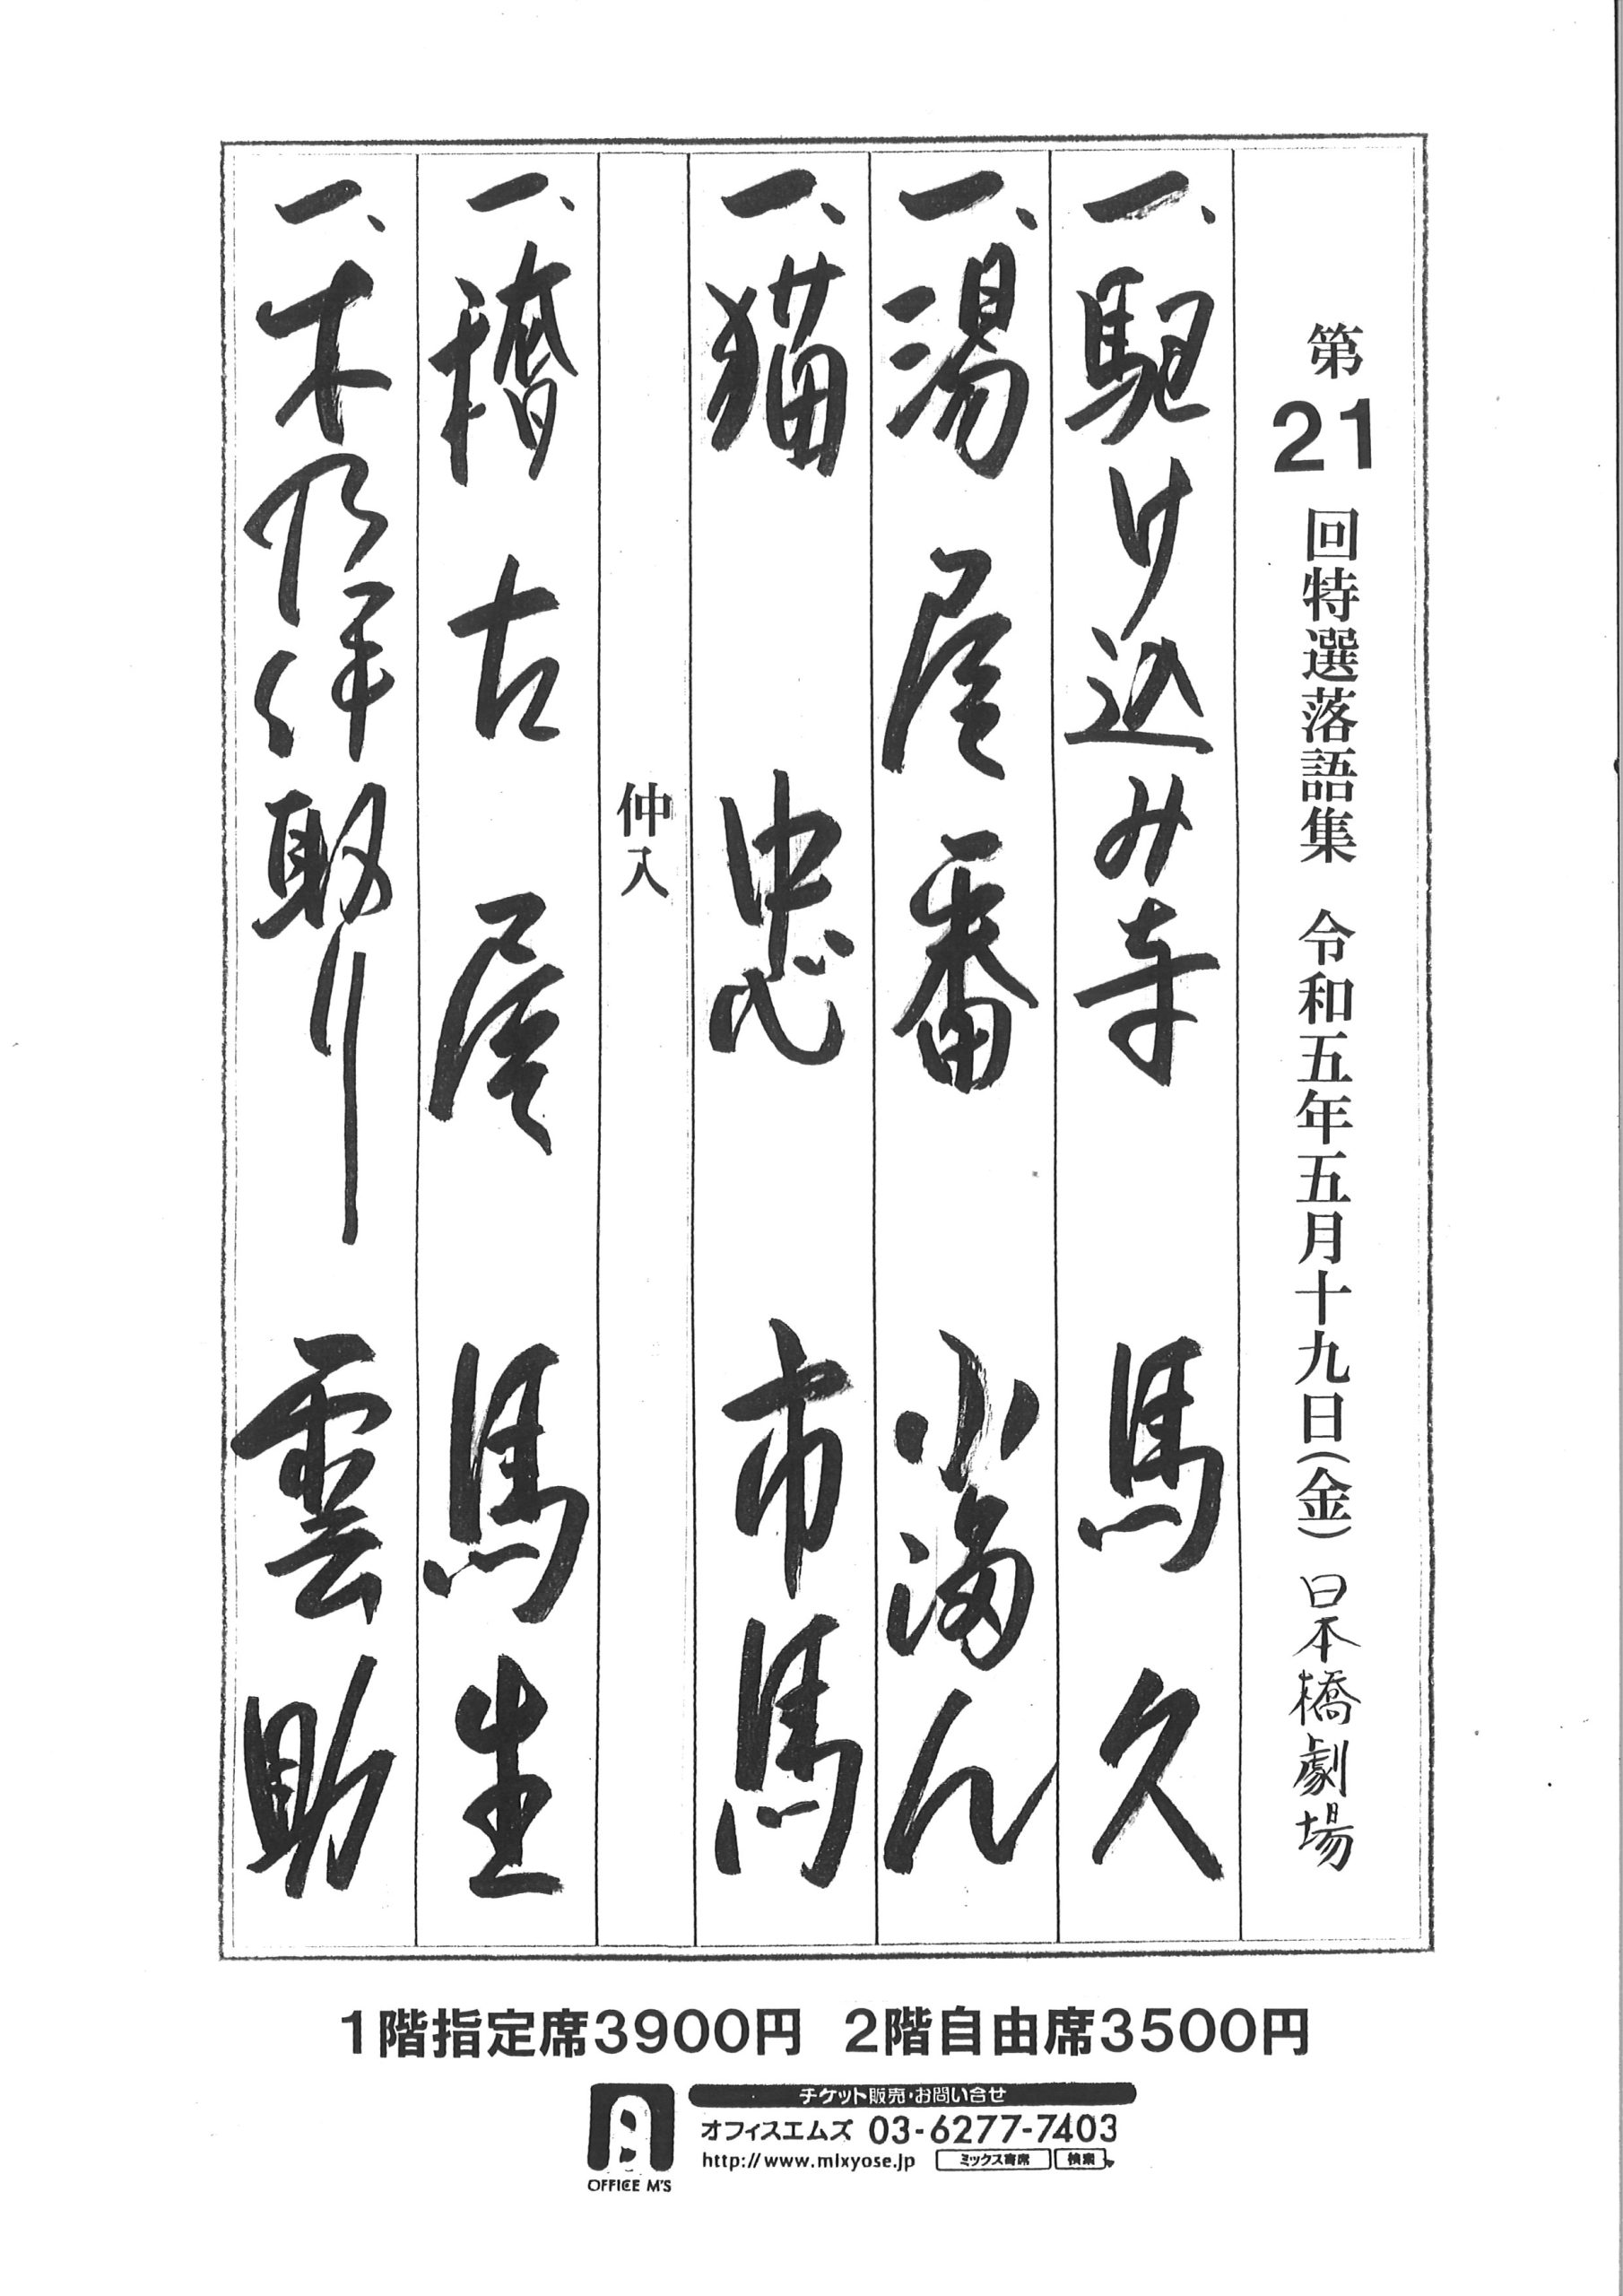 第21回特選落語集 令和五年五月十九日(金)日本橋劇場
一、駆け込み寺 馬久
一、湯屋番 小満ん
一、猫忠 市馬
仲入
一、稽古屋 馬生
一、木乃伊取り 雲助
1階指定席3900円 2階自由席3500円
チケット販売・お問い合せ
オフィスエムズ 03-6277-7403
http://www.mixyose.jp ミックス寄席 検索
OFFICE M'S